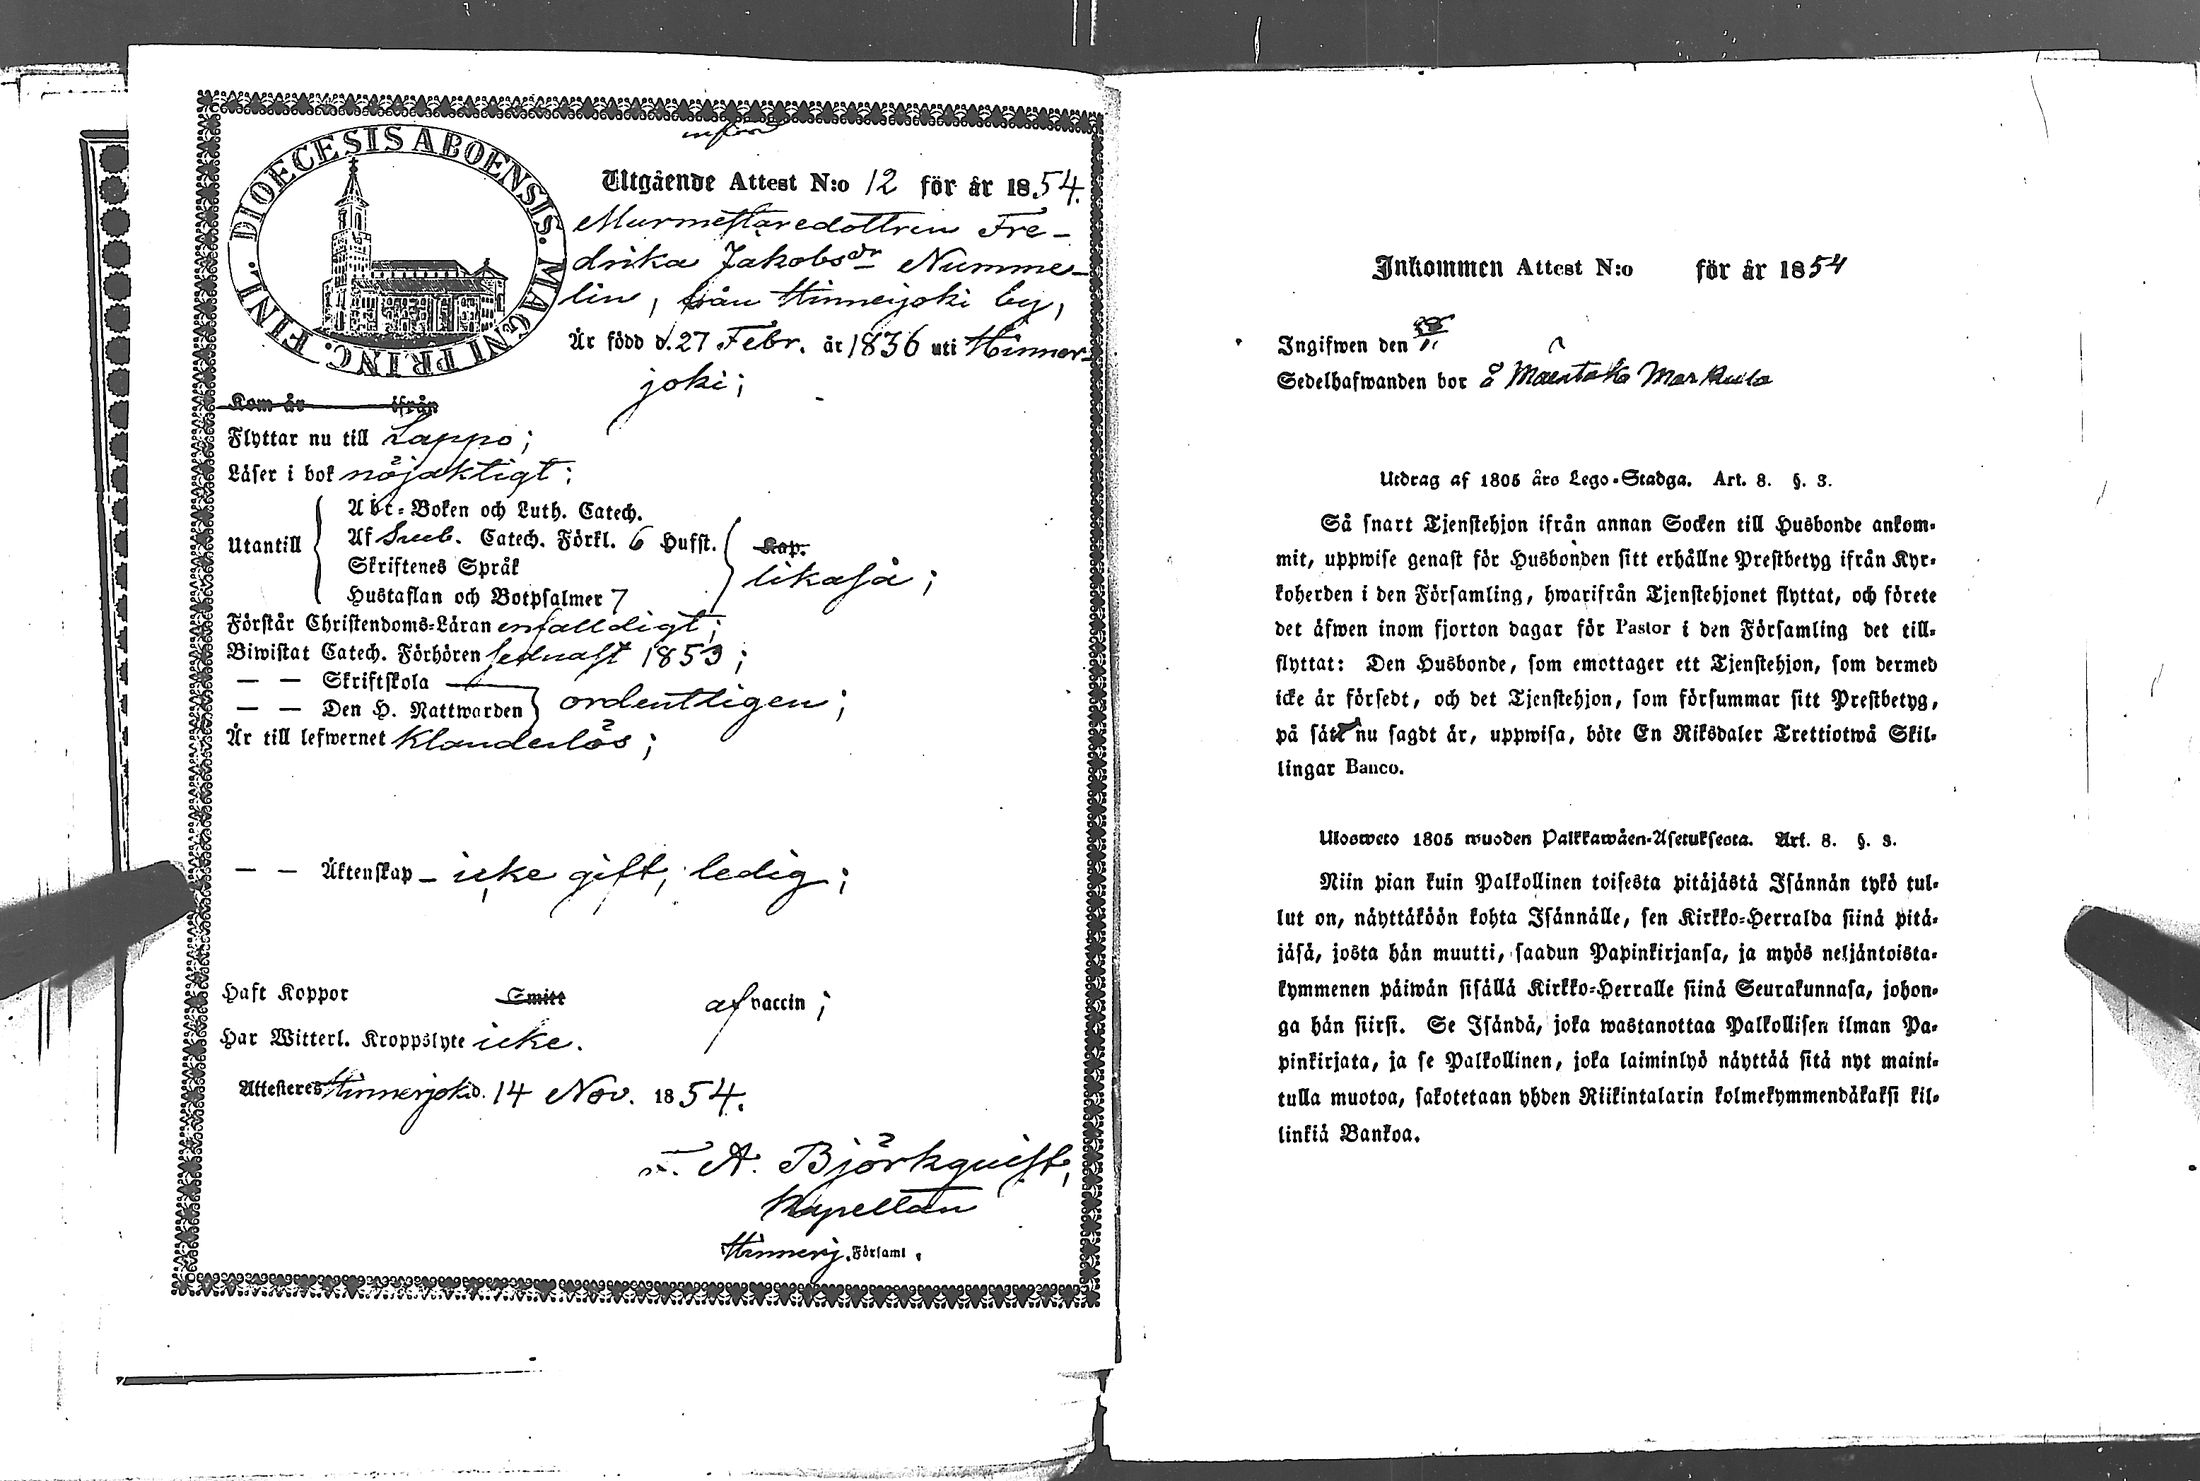 införd
DIOECESIS ABOENSIS. MAGNI PRINC. FINL.
Utgående Attest N:o 12 för år 1854.
Murmestaredottren Fre-
drika Jakobsdr Numme-
lin, från Hinnerjoki by,
Är född d. 27 Febr. år 1836 uti Hinner-
joki;
Kom år ifrån
Flyttar nu till Lappo;
Läser i bok nöjaktigt;
Utantill
Abc-Boken och Luth. Catech.
Af Sveb. Catech. Förkl. 6 Hufst.
Skriftenes Språk
Hustaflan och Botpsalmer 7
Kap.
likaså;
Förstår Christendoms-Läran enfalldigt;
Biwistat Catech. Förhören sednast 1853;
— — Skriftskola —
— — Den H. Nattwarden ordentligen;
Är till lefwernet klanderlös;
— — Äktenskap – icke gift, ledig;
Haft Koppor Smitt af vaccin;
Har Witterl. Kroppslyte icke.
Attesteres Hinnerjoki d. 14 Nov. 1854.
F. A. Björkquist,
Kapellan
Hinnerj. Församl.
Inkommen Attest N:o för år 1854
Ingifwen den
Sedelhafwanden bor å Mäntako Markula
Utdrag af 1805 års Lego-Stadga. Art. 8. §. 3.
Så snart Tjenstehjon ifrån annan Socken till Husbonde ankom-
mit, uppwise genast för Husbonden sitt erhållne Prestbetyg ifrån Kyr-
koherden i den Församling, hwarifrån Tjenstehjonet flyttat, och förete
det äfwen inom fjorton dagar för Pastor i den Församling det till-
flyttat: Den Husbonde, som emottager ett Tjenstehjon, som dermed
icke är försedt, och det Tjenstehjon, som försummar sitt Prestbetyg,
på sätt nu sagdt är, uppwisa, böte En Riksdaler Trettiotwå Skil-
lingar Banco.
Ulosweto 1805 wuoden Palkkawäen-Asetuksesta. Art. 8. §. 3.
Niin pian kuin Palkollinen toisesta pitäjästä Isännän tykö tul-
lut on, näyttäköön kohta Isännälle, sen Kirkko-Herralda siinä pitä-
jäsä, josta hän muutti, saadun Papinkirjansa, ja myös neljäntoista-
kymmenen päiwän sisällä Kirkko-Herralle siinä Seurakunnasa, johon-
ga hän siirsi. Se Isändä, joka wastanottaa Palkollisen ilman Pa-
pinkirjata, ja se Palkollinen, joka laiminlyö näyttää sitä nyt maini-
tulla muotoa, sakotetaan yhden Riikintalarin kolmekymmendäkaksi kil-
linkiä Bankoa.